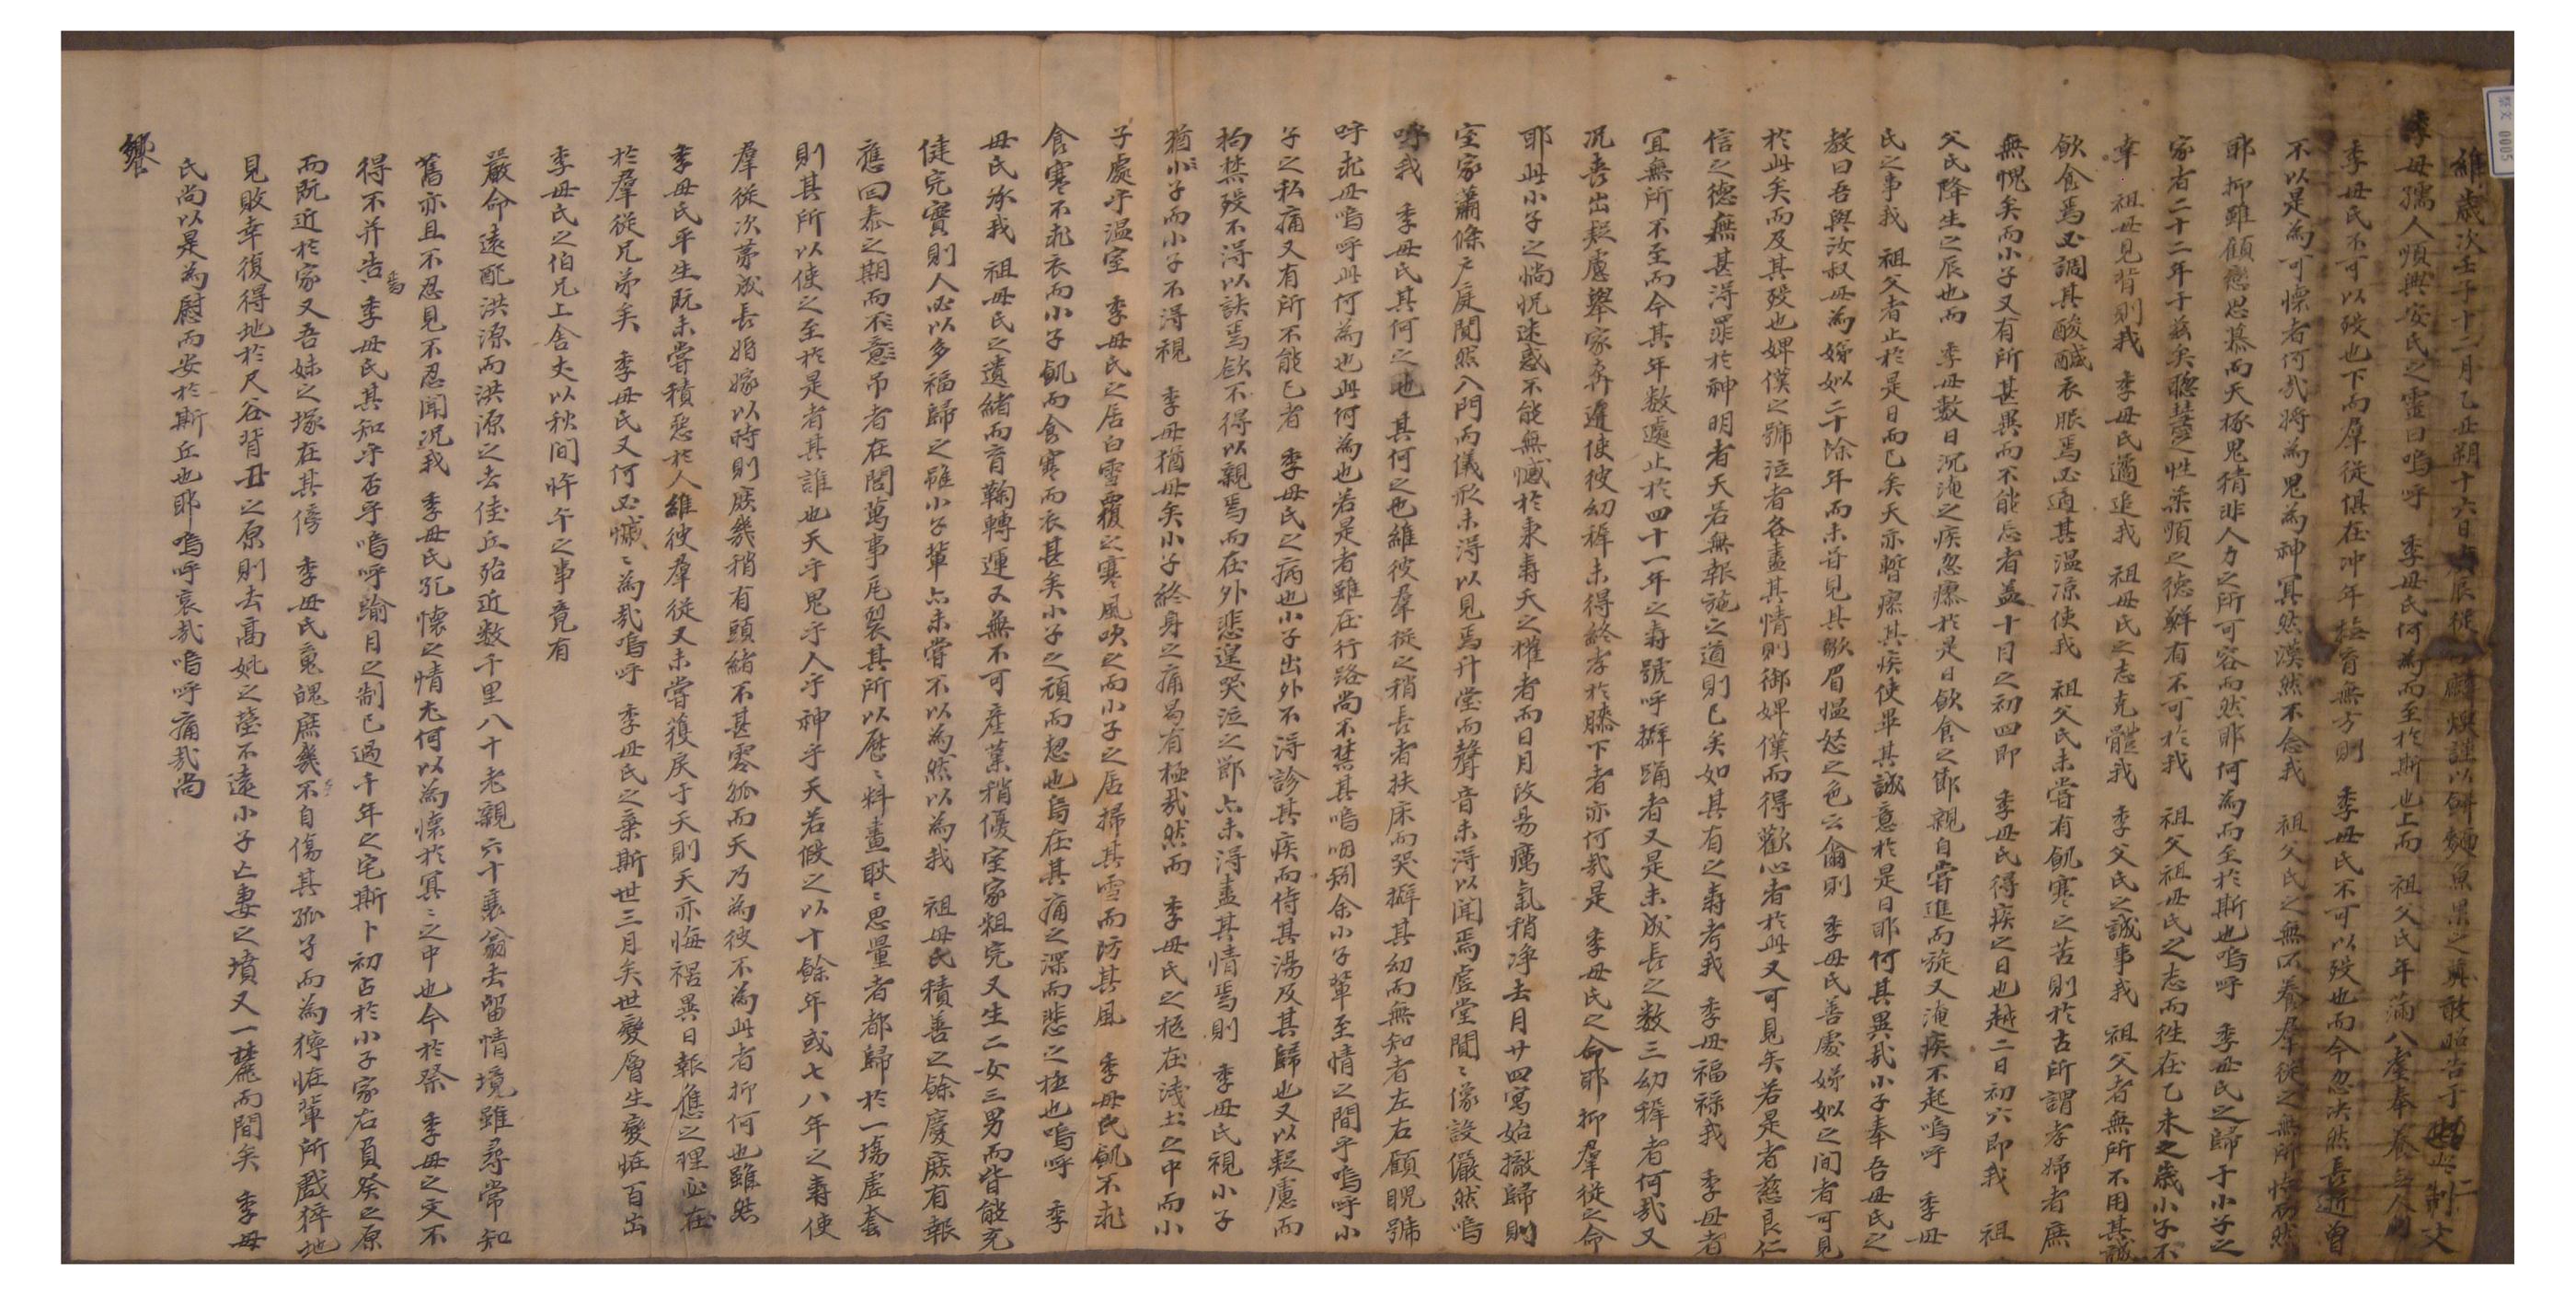 維歲次壬子十二月乙丑朔十六日 辰從 麟煥謹以餠麵魚果之奠敢昭告于
季母孺人順興安氏之靈曰嗚呼 季母氏何爲而至於斯也上而 祖父氏年滿八耋奉養 人則
季母氏不可以歿也下而羣從俱在冲年 育無方則 季母氏不可以歿也而今忽決然長逝曾
不以是爲可懷者何哉將爲鬼爲神冥然漠然不念我 祖父氏之無所養羣從之無所恃而然
耶抑雖顧戀思慕而天椓鬼猜非人力之所可容而然耶何爲而至於斯也嗚呼 季母氏之歸于小子之
家者二十二年于玆矣聰慧之性柔順之德鮮有不可於我 祖父祖母氏之志而徃在乙未之歲小子不
幸 祖母見背則我 季母氏遹追我 祖母氏之志克體我 季父氏之誠事我 祖父者無所不用其誠
飮食焉必調其酸醎衣服焉必適其温凉使我 祖父氏未嘗有飢寒之苦則於古所謂孝婦者庶
無愧矣而小子又有所甚異而不能忘者盖十月之初四卽 季母氏得疾之日也越二日初六卽我 祖
父氏降生之辰也而 季母數日沉淹之疾忽瘳於是日飮食之節親自甞進而旋又淹疾不起嗚呼 季母
氏之事我 祖父者止於是日而已矣天亦暫瘳其疾使畢其誠意於是日耶何其異哉小子奉吾母氏之
敎曰吾與汝叔母爲娣姒二十餘年而未甞見其皺眉愠怒之色云爾則 季母氏善處娣姒之间者可見
於此矣而及其歿也婢僕之號泣者各盡其情則御婢僕而得歡心者於此又可見矣若是者慈良仁
信之德無甚淂罪於神明者天若無報施之道則已矣如其有之壽考我 季母福祿我 季母者
宜無所不至而今其年數遽止於四十一年之壽號呼擗踊者又是未成長之数三幼穉者何哉又
况喪出疑慮擧家奔避使彼幼穉未得終孝於膝下者亦何哉是 季母氏之命耶抑羣從之命
耶此小子之惝怳迷惑不能無憾於東壽夭之權者而日月改易癘氣稍净去月廿四寓始撤歸則
室家蕭條戶庭閴然入門而儀形未淂以見焉升堂而聲音未淂以聞焉虛堂閴〻像設儼然嗚
呼我 季母氏其何之也其何之也維彼羣從之稍長者扶床而哭擗其幼而無知者左右顧眄號
呼乾母嗚呼此何爲也此何爲也若是者雖在行路尙不禁其嗚咽矧余小子輩至情之間乎嗚呼小
子之私痛又有所不能已者 季母氏之病也小子出外不淂診其疾而侍其湯及其歸也又以疑慮而
拘禁歿不淂以訣焉歛不得以親焉而在外悲遑哭泣之節亦未淂盡其情焉則 季母氏視小子
猶小子而小子不淂視 季母猶母矣小子終身之痛曷有極哉然而 季母氏之柩在淺土之中而小
子處乎温室 季母氏之居白雪覆之寒風吹之而小子之居掃其雪而防其風 季母氏飢不能
食寒不能衣而小子飢而食寒而衣甚矣小子之頑而恝也烏在其痛之深而悲之極也嗚呼 季
母氏承我 祖母氏之遺緖而育鞠轉運又無不可産業稍優室家粗完又生二女三男而皆能充
健完實則人必以多福歸之雖小子輩亦未嘗不以爲然以爲我 祖母氏積善之餘慶庶有報
應回泰之期而不意吊者在閭萬事瓦裂其所以歷〻料畫耿〻思量者都歸於一塲虛套
則其所以使之至於是者其誰也天乎鬼乎人乎神乎天若假之以十餘年或七八年之壽使
羣從次第成長婚嫁以時則庶幾稍有頭緖不甚零孤而天乃爲彼不爲此者抑何也雖然
季母氏平生旣未嘗積惡於人維彼羣從又未嘗獲戾于天則天亦悔禍異日報應之理必在
於羣從兄弟矣 季母氏又何必慽〻爲哉嗚呼 季母氏之棄斯世三月矣世變層生變恠百出
季母氏之伯兄上舍丈以秋间忤午之事竟有
嚴命遠配洪源而洪源之去佳丘殆近数千里八十老親六十衰翁去留情境雖尋常知
舊亦且不忍見不忍聞况我 季母氏死懷之情尤何以爲懷於冥〻之中也今於祭 季母之文不
得不并告焉 季母氏其知乎否乎嗚呼踰月之制已過千年之宅斯卜初占於小子家右負癸之原
而旣近於家又吾妹之塚在其傍 季母氏䰟魄庶幾不自傷其孤子而爲獰恠輩所戱猝地
見敗幸復得地於尺谷背丑之原則去高妣之塋不遠小子亡妻之墳又一麓而間矣 季母
氏尙以是爲慰而安於斯丘也耶嗚呼哀哉嗚呼痛哉尙
饗